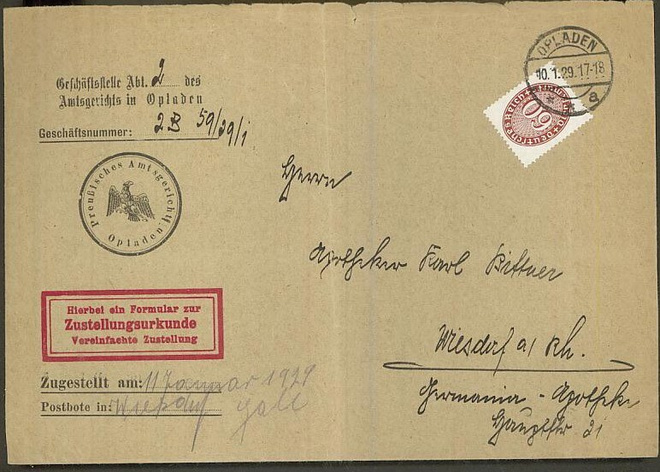 Geschäftsstelle Abt. 2 des
Amtsgerichts in Opladen
Geschäftsnummer: 2 B 59/29/1
Preußisches Amtsgericht
Opladen
OPLADEN
10.1.29.17-18
* * a
DEUTSCHES REICH
60
Herrn
Apotheker Karl Bittner
Wiesdorf a/Rh.
Germania-Apotheke
Hauptstr 21
Hierbei ein Formular zur
Zustellungsurkunde
Vereinfachte Zustellung
Zugestellt am: 11 Januar 1929
Postbote in: Wiesdorf